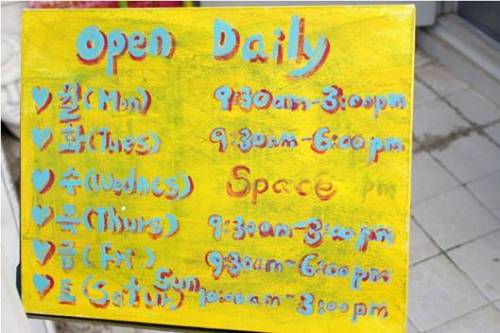 Open Daily
월(Mon) 9:30am-3:00pm
화(Tues) 9:30am-6:00pm
수(Wednes) Space pm
목(Thurs) 9:30am-3:00pm
금(Fri) 9:30am-3:00pm
토(Satur) Sun 10:00am-3:00pm